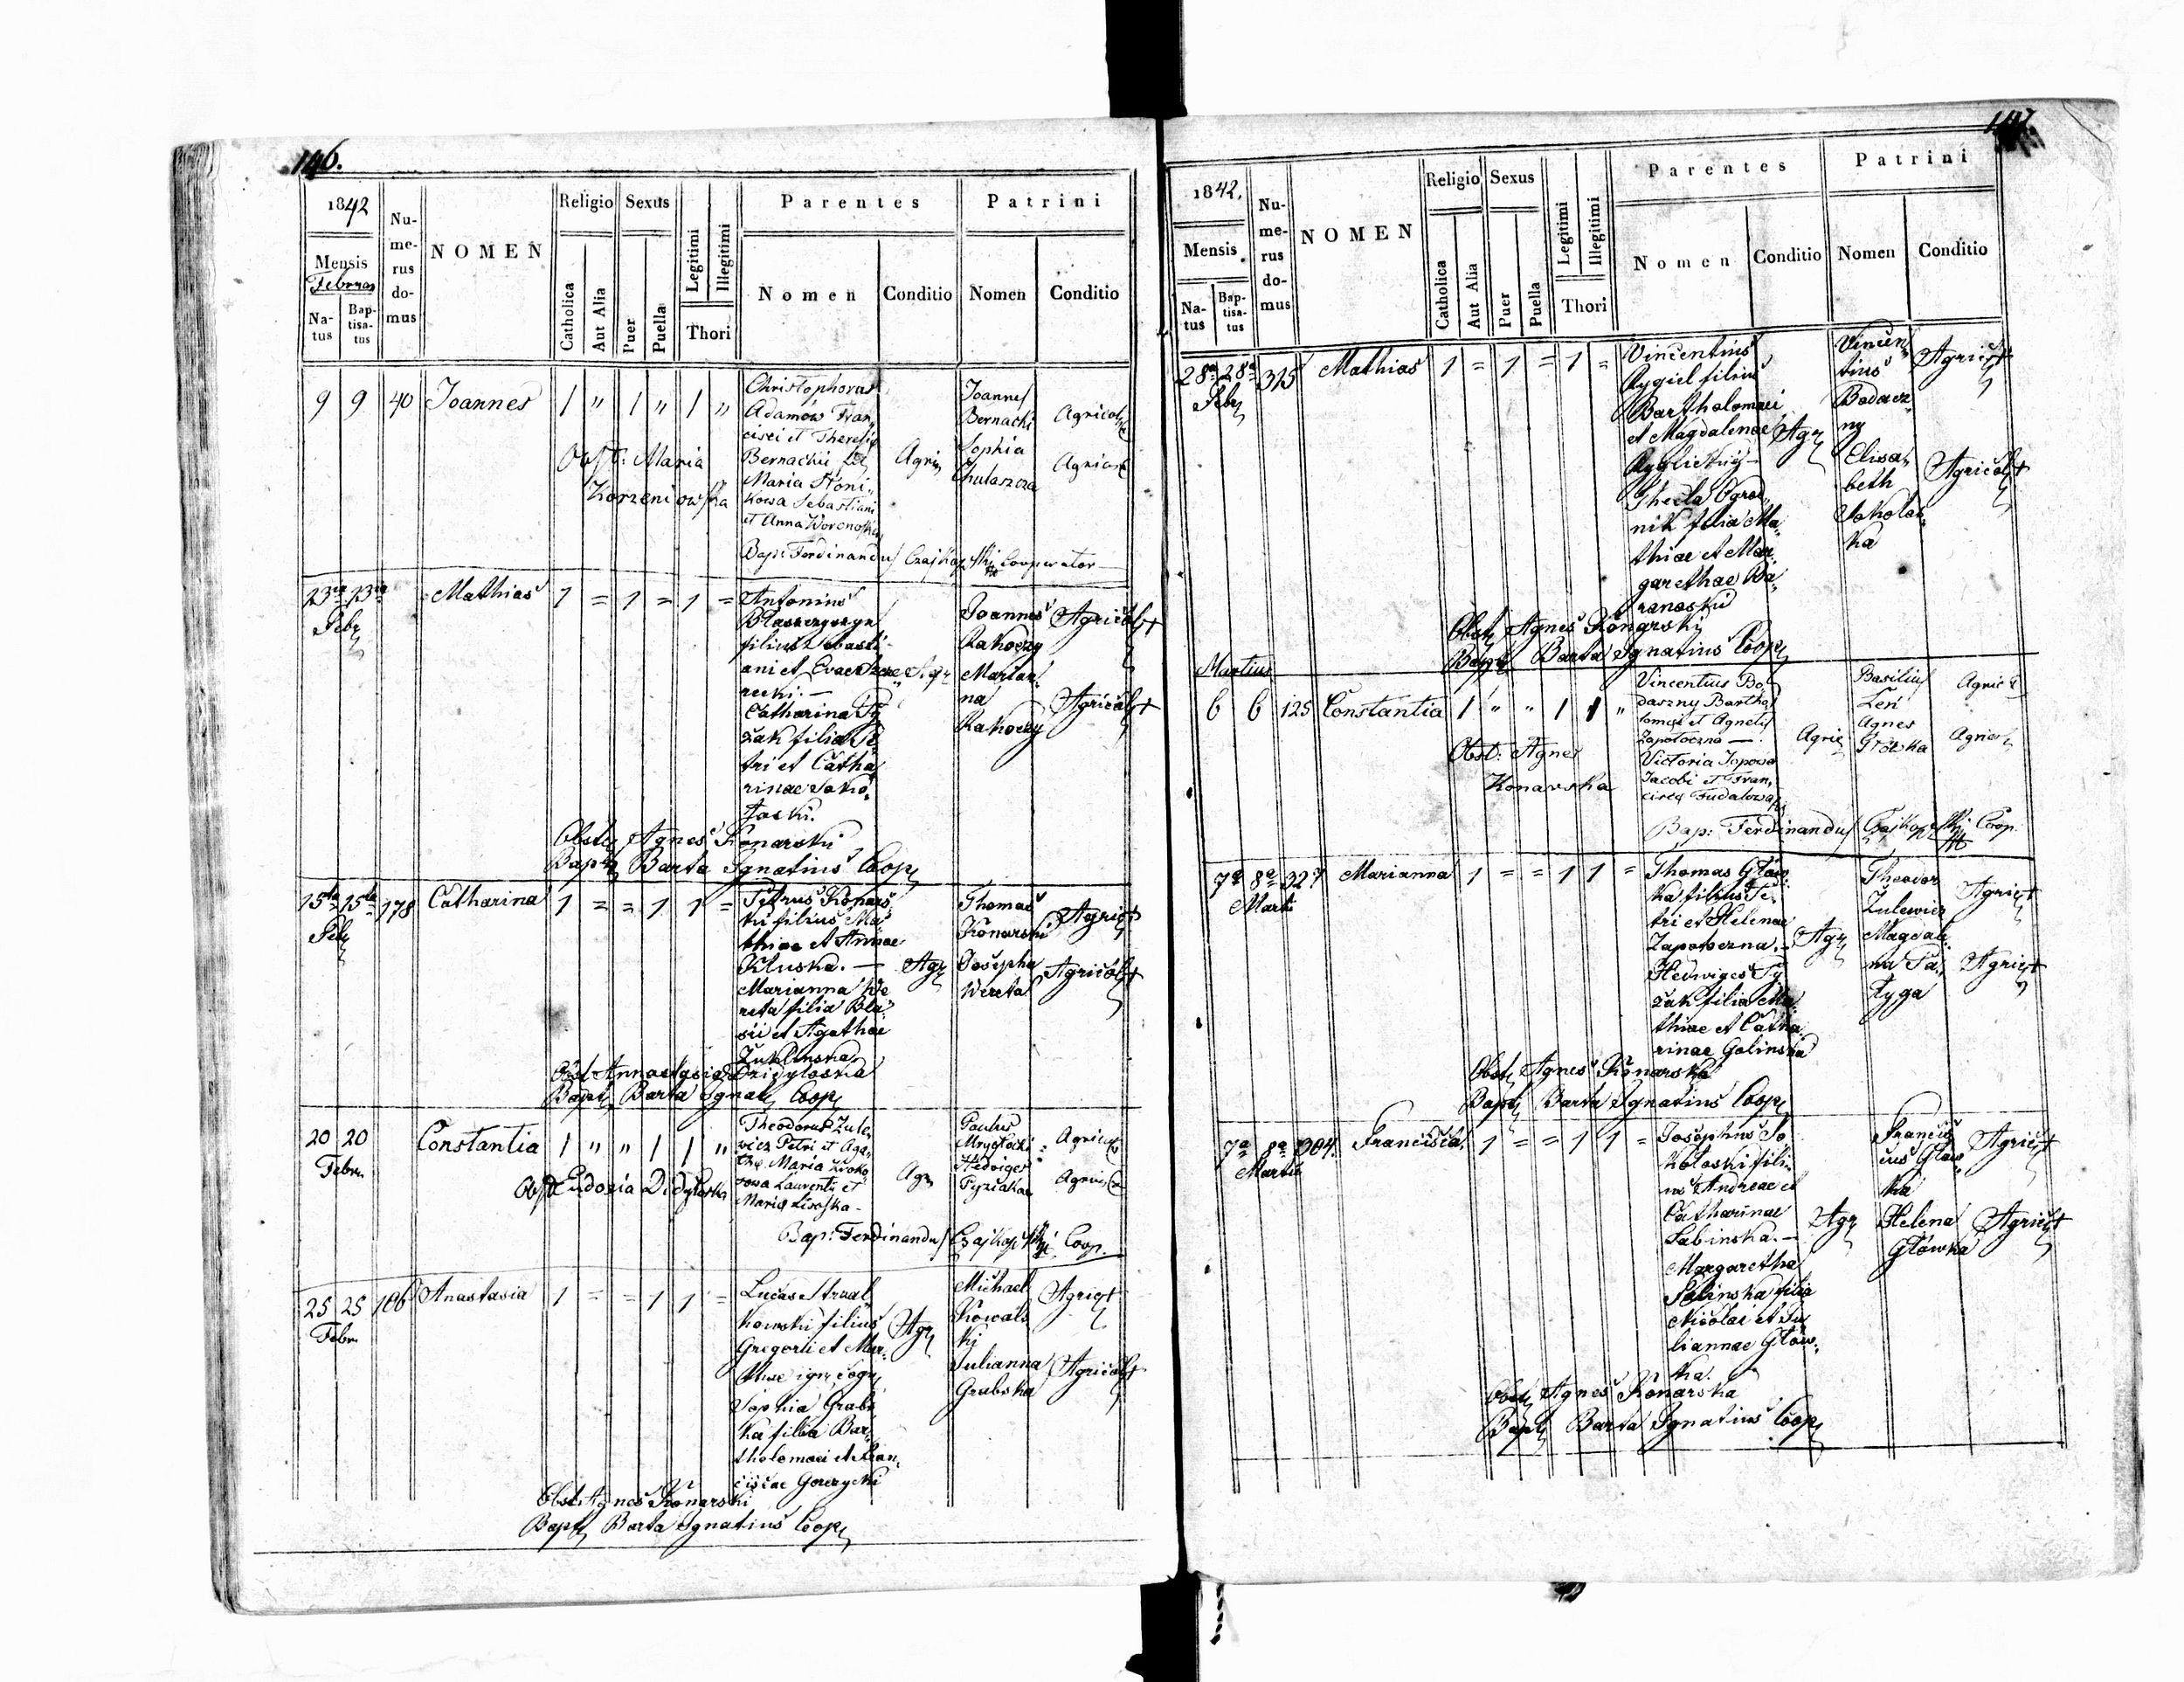 146.
1842
Mensis
Februas
Na-
tus
Bap-
tisa-
tus
Nu-
me-
rus
do-
mus
NOMEN
Religio
Catholica
Aut Alia
Sexus
Puer
Puella
Legitimi
Illegitimi
Thori
Parentes
Nomen
Conditio
Patrini
Nomen
Conditio
9 9 40 Joannes 1 " 1 " 1 "
Christophorus
Adamów Fran,
cisci et Theresia
Bernachii
Maria Słoni,,
kowa Sebastiani
et Anna
Agric
Joannes
Bernachi
Sophia
Chulaszcza
Agricol
Agricol
Obst: Maria
Korzeniowska
Bap: Ferdinandus Czajkowski Cooperator
13ta 13ta
Febr
Mathias 1 = 1 = 1 =
Antonius
Blaszczyszyn
filius Sebasti-
ani et Evae
Catharina Ty
żak filia Pe
tri et Catha
rinae Soko,,
łoski.
Agr
Joannes
Rakoczy
Marian,,
na
Rakoczy
Agricol +
Agricol +
Obst Agnes Konarski
Bapt Barta Ignatius Coop
15ta 15ta 178
Feb
Catharina 1 = = 1 1 =
Petrus Konars
ki filius Ma
thiae et Annae
Kluska. —
Marianna We
reta filia Bla
sii et Agathae
Żuklinska
Agr
Thomas
Konarski
Josepha
Wereta
Agric +
Agricol +
Obst Anastasia Dzidyloska
Bapt Barta Ignat Coop
20 20
Febru.
Constantia 1 " " 1 1 "
Theodorus Zule,
wicz Petri et Aga,
Laurentii et
Agr
Paulus
Mrygłocki
Hedviges
Pyziakae
Agricol
Agricol
Obst Eudoxia Didyloska
Bap: Ferdinandus Czajkowski Coop.
25 25 106
Febru.
Anastasia 1 = = 1 1 =
Lucas Strzal
kowski filius
Gregorii et Mar-
Sophia Grabs
ka filia Bar,
tholomaei et Fran,
ciscae Gorzycki
Agr
Michael
Kowals
ki
Julianna
Grabska
Agric +
Agricol +
Obst Agnes Konarski
Bapt Barta Ignatius Coop
147.
1842.
Mensis
Na-
tus
Bap-
tisa-
tus
Nu-
me-
rus
do-
mus
NOMEN
Religio
Catholica
Aut Alia
Sexus
Puer
Puella
Legitimi
Illegitimi
Thori
Parentes
Nomen
Conditio
Patrini
Nomen
Conditio
28a 28a 315
Febr
Mathias 1 = 1 = 1 =
Vincentius
Rygiel filius
Bartholomaei
et Magdalenae
Thecla Ogrod,,
nik filia Ma,,
thiae et Mar
garethae Ba,
ranoski
Agr
Vincen
tius
Bodacz
ny
Elisa,,
beth
Sokolos
ka
Agric +
Agricol +
Obst Agnes Konarski
Bapt Barta Ignatius Coop
Martius
6 6 125 Constantia 1 " " 1 1 "
Vincentius Bo,
daszny Bartho,
lomaei et Agnetis
Zapotoczna —
Victoria Popowa
Jacobi et Fran,
cisca Fudalowa
Agric
Basilius
Len
Agnes
Grocka
Agric
Agricol
Obst: Agnes
Konarska
Bap: Ferdinandus Czajkowski Coop.
7a 8a 327
Marti
Marianna 1 = = 1 1 =
Thomas Głów
ka filius Pe,
tri et Helenae
Zapotoczna. —
Hedviges Ty
żak filia Ma
thiae et Catha
rinae Golinska
Agr
Theodor
Zulewicz
Magdale
na Pa,
łyga
Agric +
Agric +
Obst Agnes Konarska
Bapt Barta Ignatius Coop
7a 8a 304.
Martii
Francisca 1 = = 1 1 =
Josephus So
koloski fili,
us Andreae et
Catharinae
Sabinska. —
Margaretha
Sabinska filia
Nicolai et Ju
liannae Głów,,
ka.
Agr
Francis
cus Głów,
ka
Helena
Główka
Agric +
Agric +
Obst Agnes Konarska
Bapt Barta Ignatius Coop